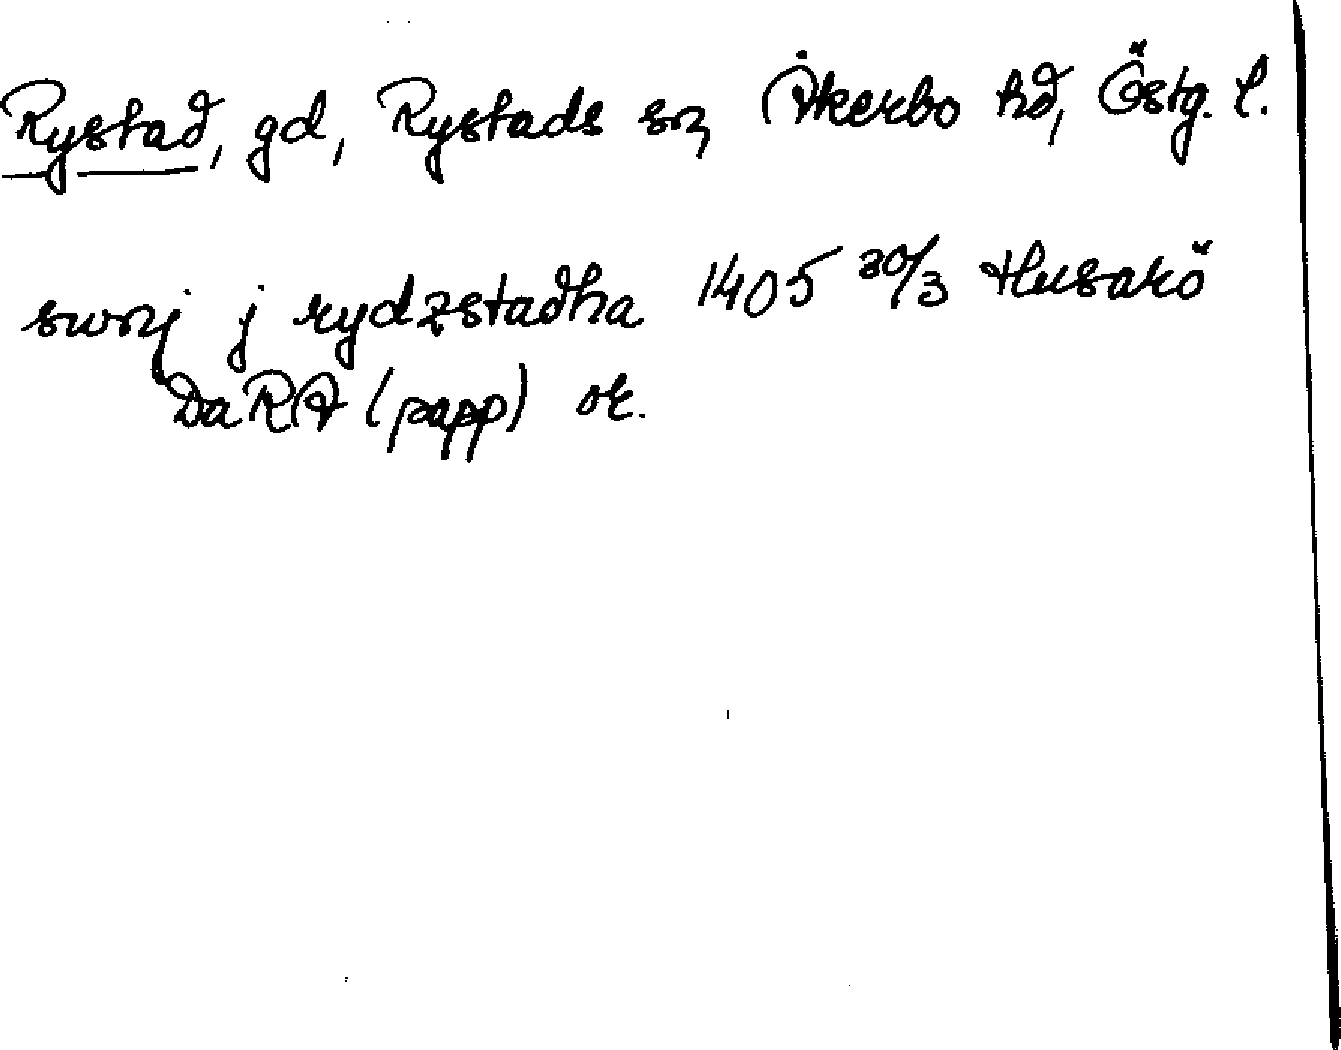 Rystad, gd, Rystads sn, Åkerbo hd, Östg. l.
j rydzstadha 1405 30/3 Husarö
DaRA (papp) or.